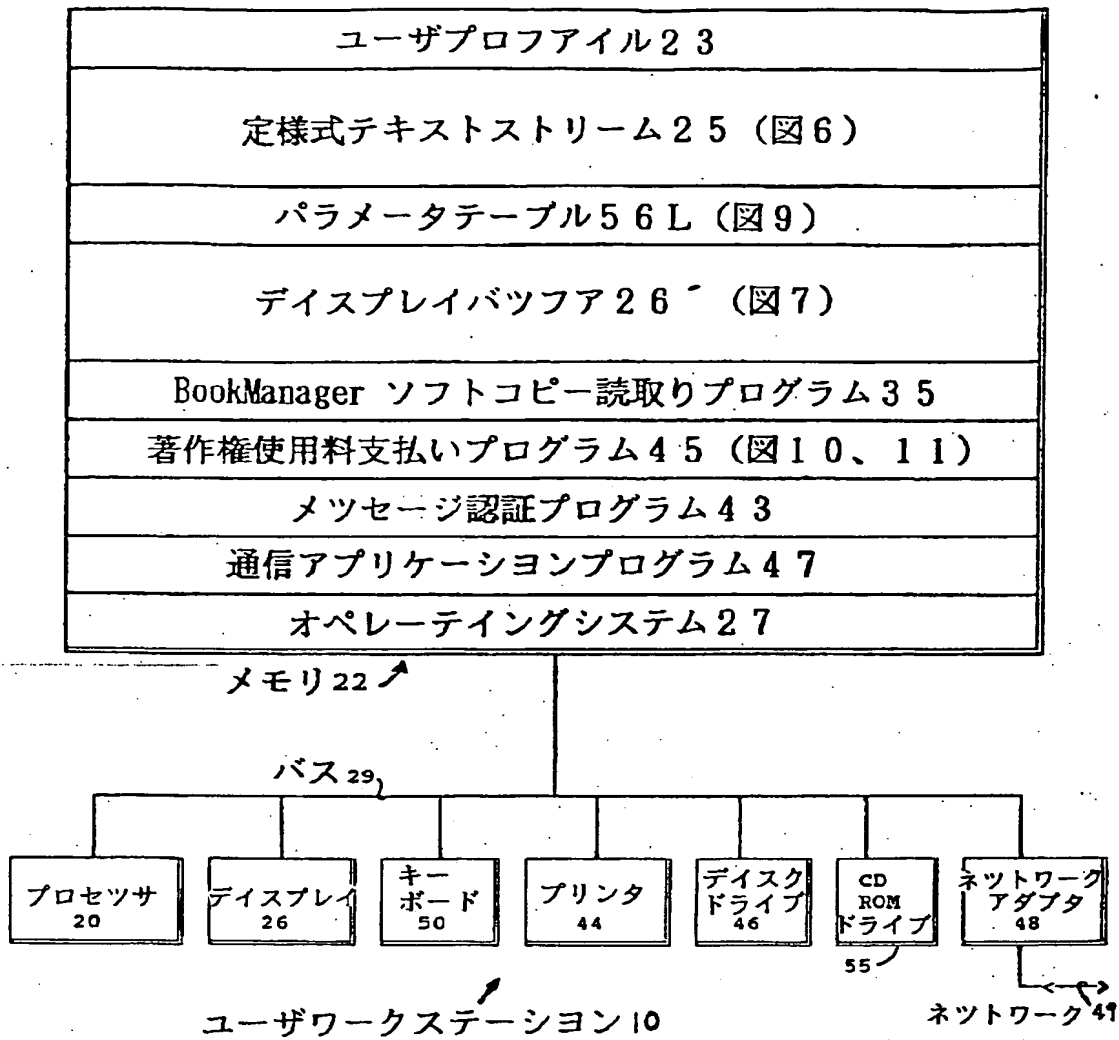 ユーザプロフアイル23
定様式テキストストリーム25（図6）
パラメータテーブル56L（図9）
デイスプレイバツフア26´（図7）
BookManager ソフトコピー読取りプログラム35
著作権使用料支払いプログラム45（図10、11）
メツセージ認証プログラム43
通信アプリケーシヨンプログラム47
オペレーテイングシステム27
メモリ22
バス29
プロセツサ
20
デイスプレイ
26
キー
ボード
50
プリンタ
44
デイスク
ドライブ
46
CD
ROM
ドライブ
55
ネツトワーク
アダプタ
48
ユーザワークステーシヨン10
ネツトワーク49